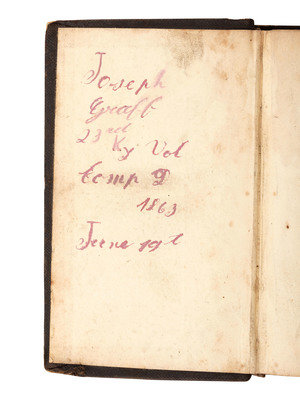 Joseph
Graff
23rd
Ky Vol
Comp D
1863
June 19t